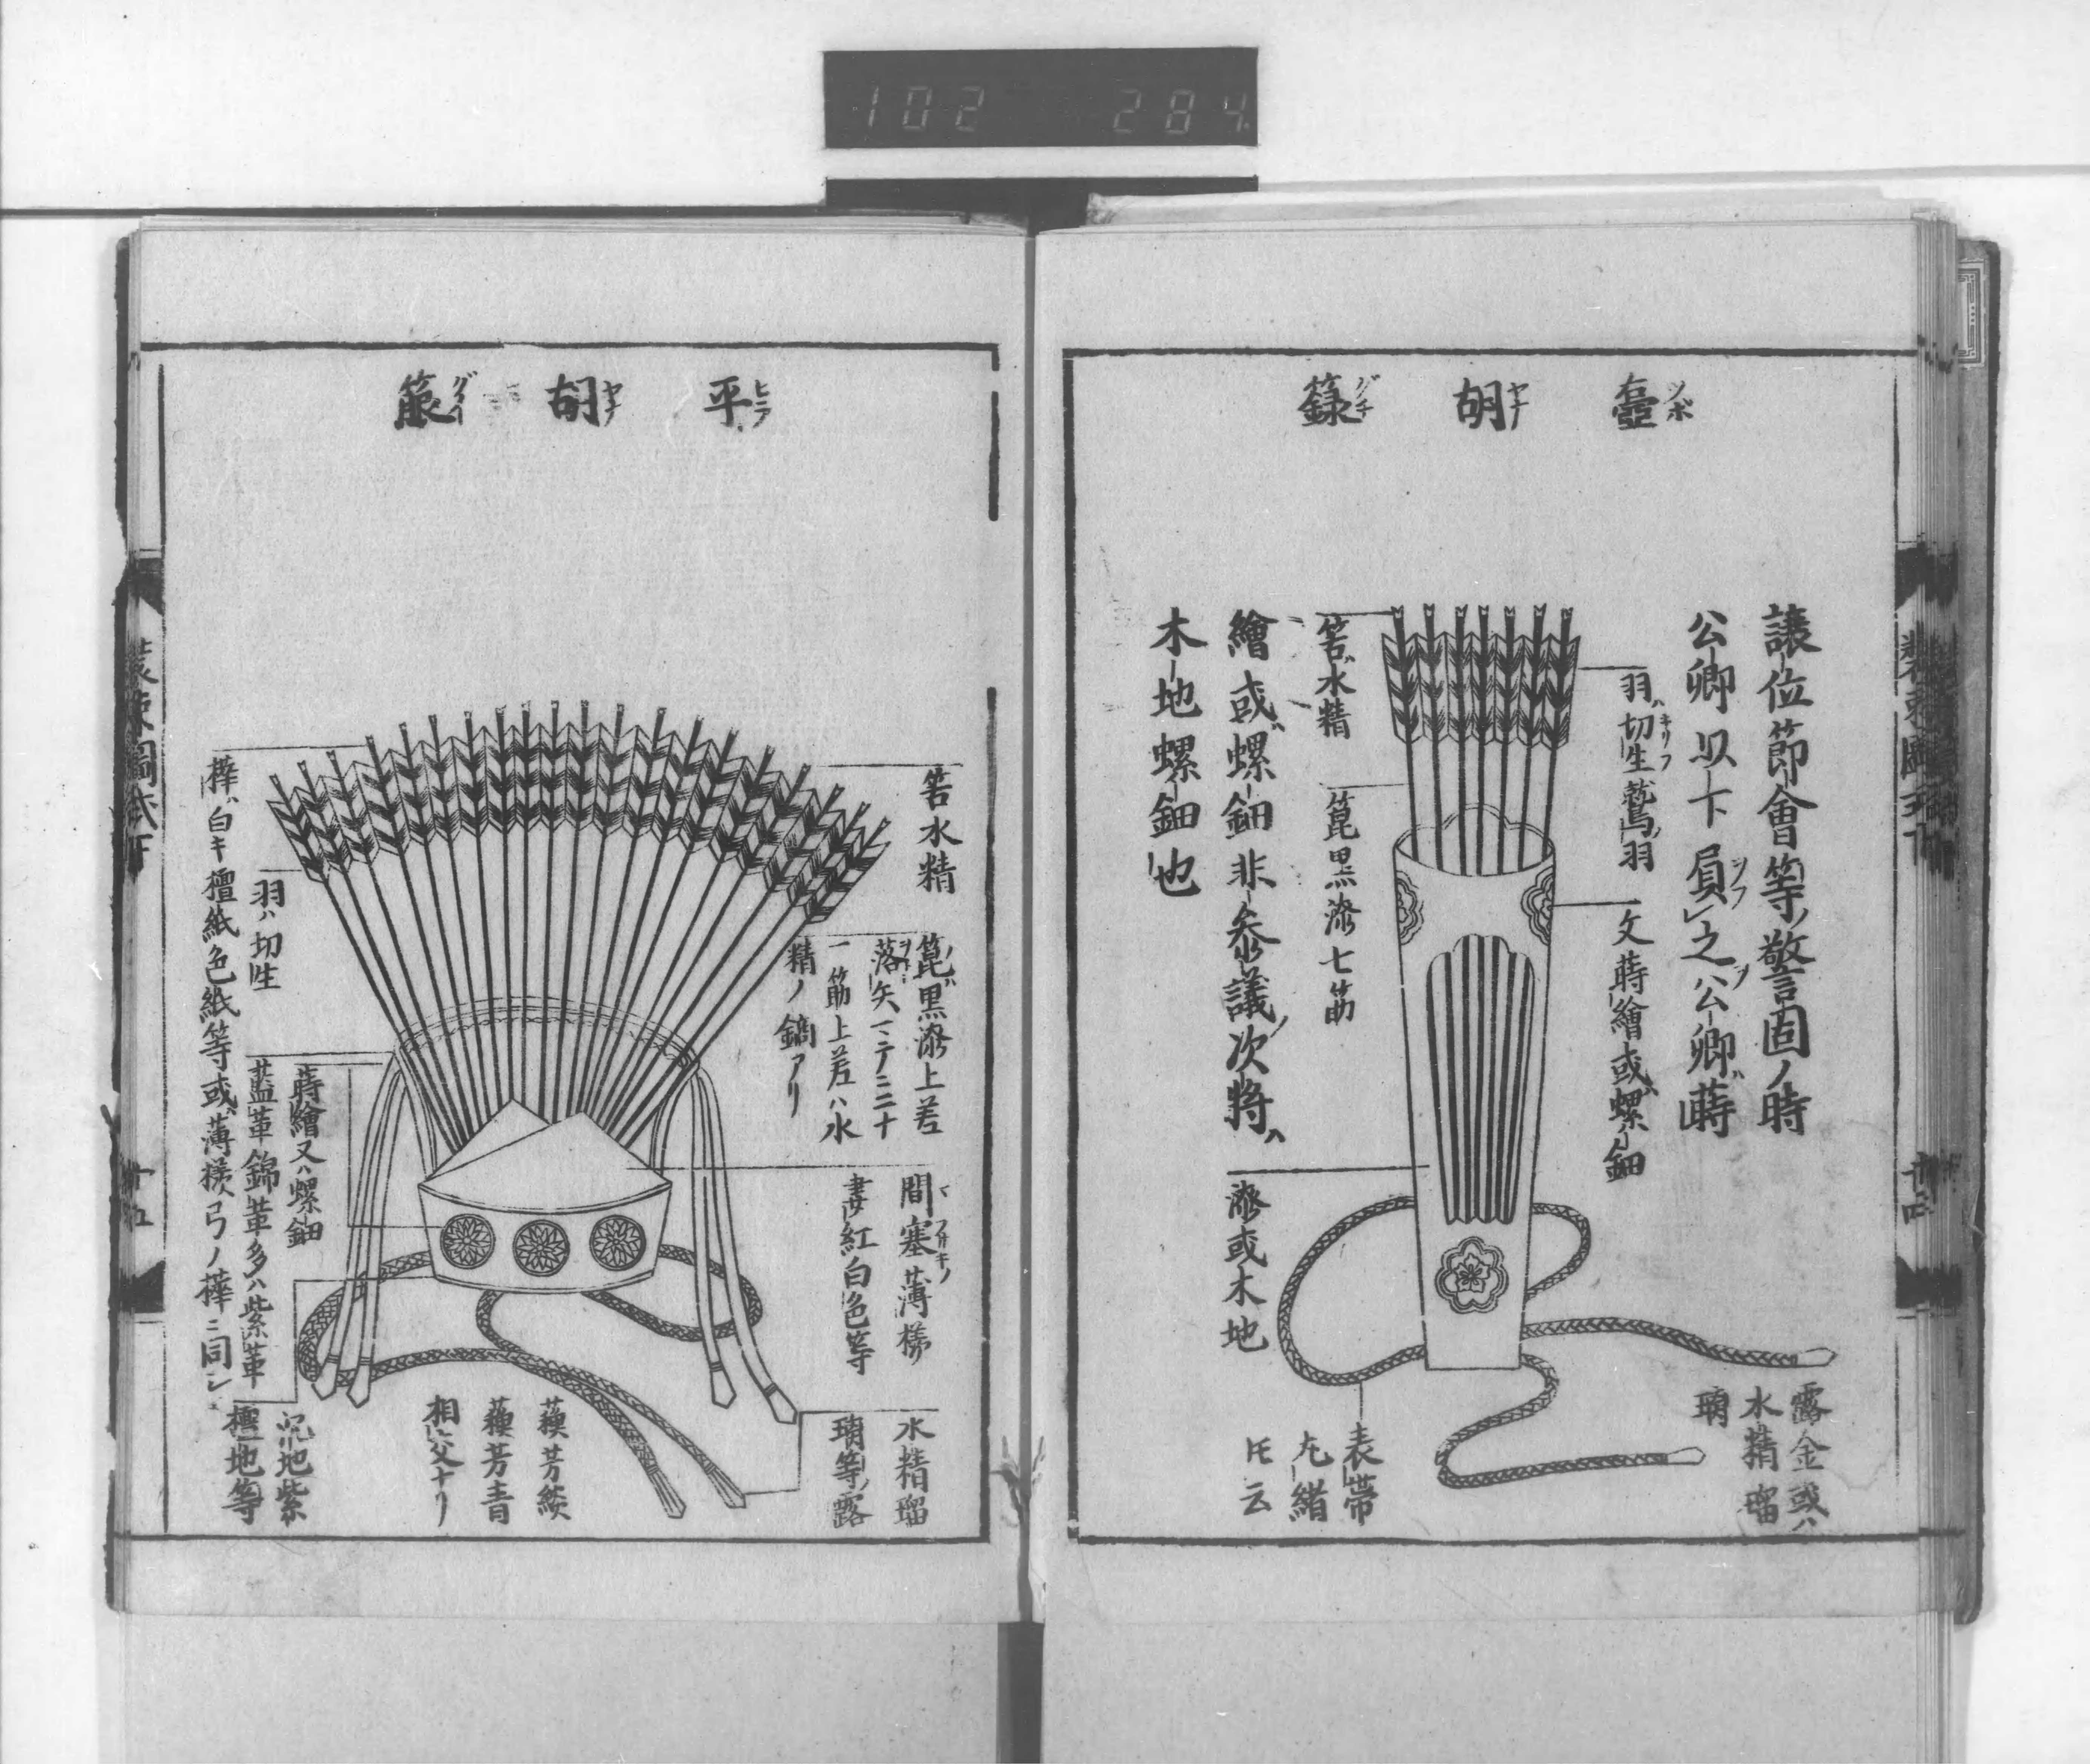 102 284
壺胡籙
ツボヤナグイ
譲位節會等ノ警固ノ時
公卿以下屓之公卿ハ蒔
繪或ハ螺鈿非参議次將ハ
木地螺鈿也
羽ハ切生鷲羽
キリフ
文蒔繪或ハ螺鈿
筈ハ水精
箆黒漆七筋
漆或木地
露金或ハ
水精瑠
璃
表帯
丸緒
圧云
平胡箙
ヒラヤナグイ
筈水精
箆ハ黒漆上差
落矢マテ三十
一筋上差ハ水
精ノ鏑アリ
間塞薄様
妻紅白色等
水精瑠
璃等露
蘓芳綟
蘓芳青
相交ナリ
羽ハ切生
蒔繪又ハ螺鈿
藍革錦革多ハ紫革
沉地紫
檀地等
樺ハ白キ檀紙色紙等或ハ薄様弓ノ樺ニ同シ